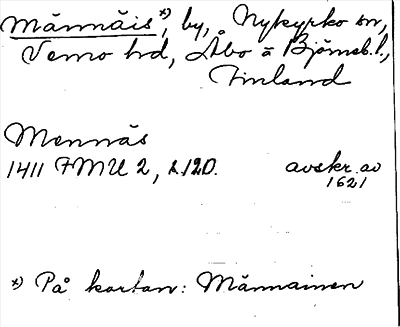 Männäis *), by, Nykyrko sn,
Vemo hd, Åbo ä Björneb. l.,
Finland
Mennäs
1411 FMU 2, s. 120. avskr. av
1621
*) På kartan: Männainen